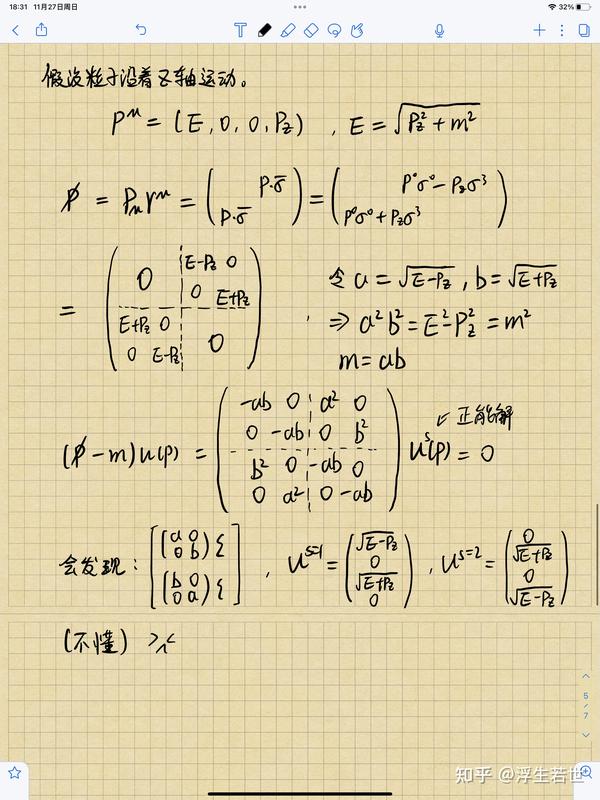 18:31 11月27日周日
32%
假设粒子沿着z轴运动。
P^μ = (E, 0, 0, P_z) , E = √(P_z² + m²)
p̸ = P_μ γ^μ = ( P·σ ; P·σ̄ ) = ( P⁰σ⁰ − P_zσ³ ; P⁰σ⁰ + P_zσ³ )
= ( 0 | E−P_z 0 ; 0 E+P_z | E+P_z 0 ; 0 E−P_z | 0 ) , 令 a = √(E−P_z) , b = √(E+P_z)
⇒ a²b² = E² − P_z² = m²
m = ab
(p̸ − m) u(p) = ( −ab 0 a² 0 ; 0 −ab 0 b² ; b² 0 −ab 0 ; 0 a² 0 −ab ) u^s(p) = 0 ↙ 正能解
会发现: [ (a 0 ; 0 b) ξ ; (b 0 ; 0 a) ξ ] , u^{s=1} = ( √(E−P_z) ; 0 ; √(E+P_z) ; 0 ) , u^{s=2} = ( 0 ; √(E+P_z) ; 0 ; √(E−P_z) )
(不懂) >人<
5/7
知乎 @浮生若世